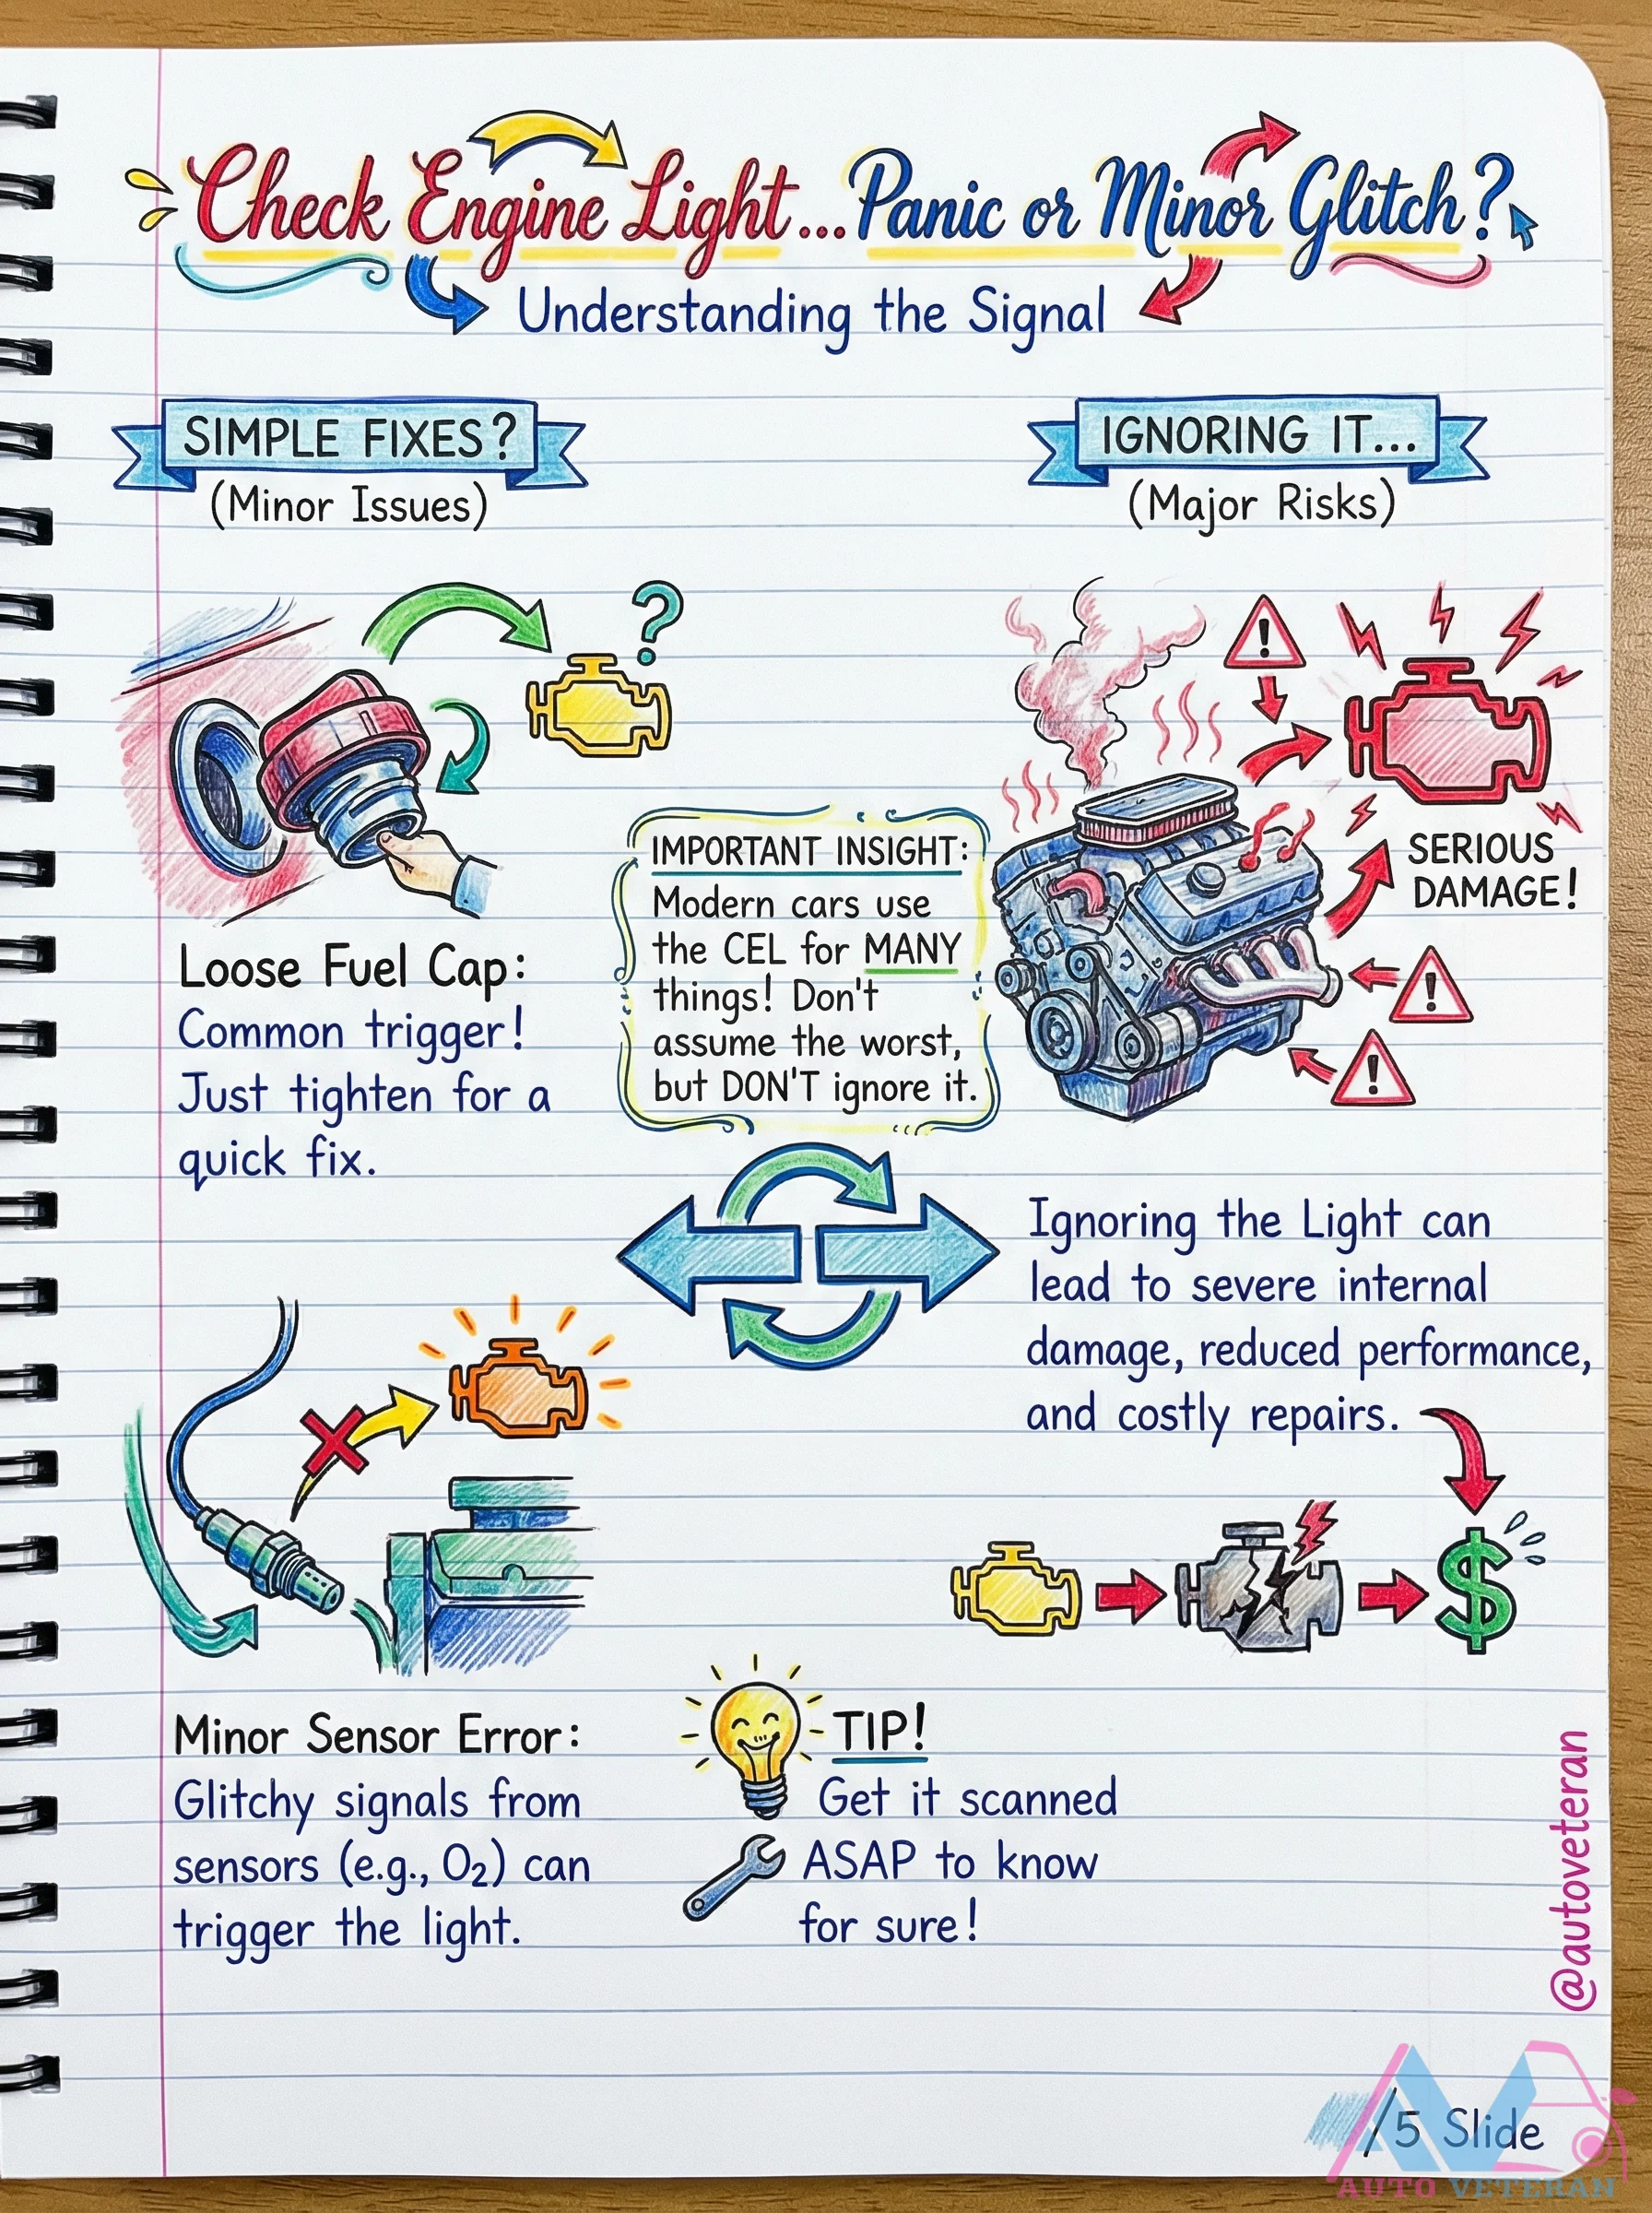 Check Engine Light...Panic or Minor Glitch?
Understanding the Signal
SIMPLE FIXES?
(Minor Issues)
IGNORING IT...
(Major Risks)
?
!
SERIOUS
DAMAGE!
!
!
Loose Fuel Cap:
Common trigger!
Just tighten for a
quick fix.
IMPORTANT INSIGHT:
Modern cars use
the CEL for MANY
things! Don't
assume the worst,
but DON'T ignore it.
Ignoring the Light can
lead to severe internal
damage, reduced performance,
and costly repairs.
$
Minor Sensor Error:
Glitchy signals from
sensors (e.g., O₂) can
trigger the light.
TIP!
Get it scanned
ASAP to know
for sure!
@autoveteran
/5 Slide
AUTO VETERAN